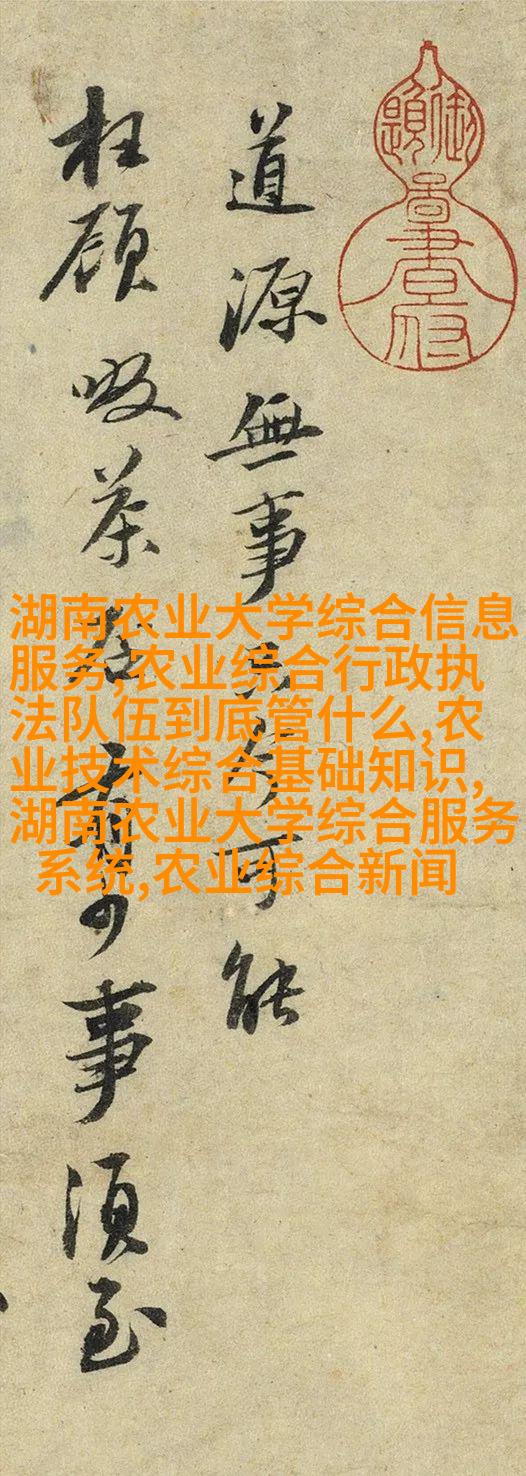 道源無事只今可能
枉顧啜茶否有少事須至
湖南农业大学综合信息
服务,农业综合行政执
法队伍到底管什么,农
业技术综合基础知识,
湖南农业大学综合服务
系统,农业综合新闻